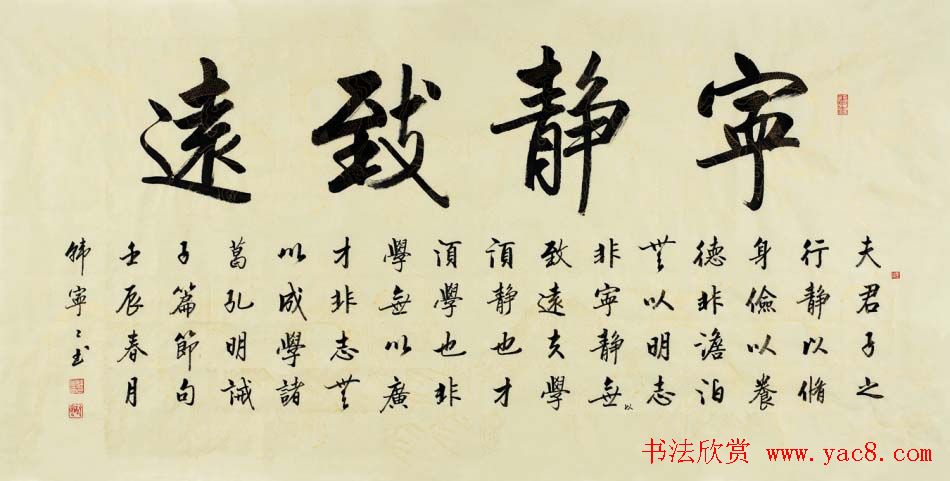 寧靜致遠
夫君子之
行静以脩
身儉以養
德非澹泊
無以明志
非寧静無以
致遠夫學
須静也才
須學也非
學無以廣
才非志無
以成學諸
葛孔明誡
子篇節句
壬辰春月
韩寧寧书
书法欣赏 www.yac8.com